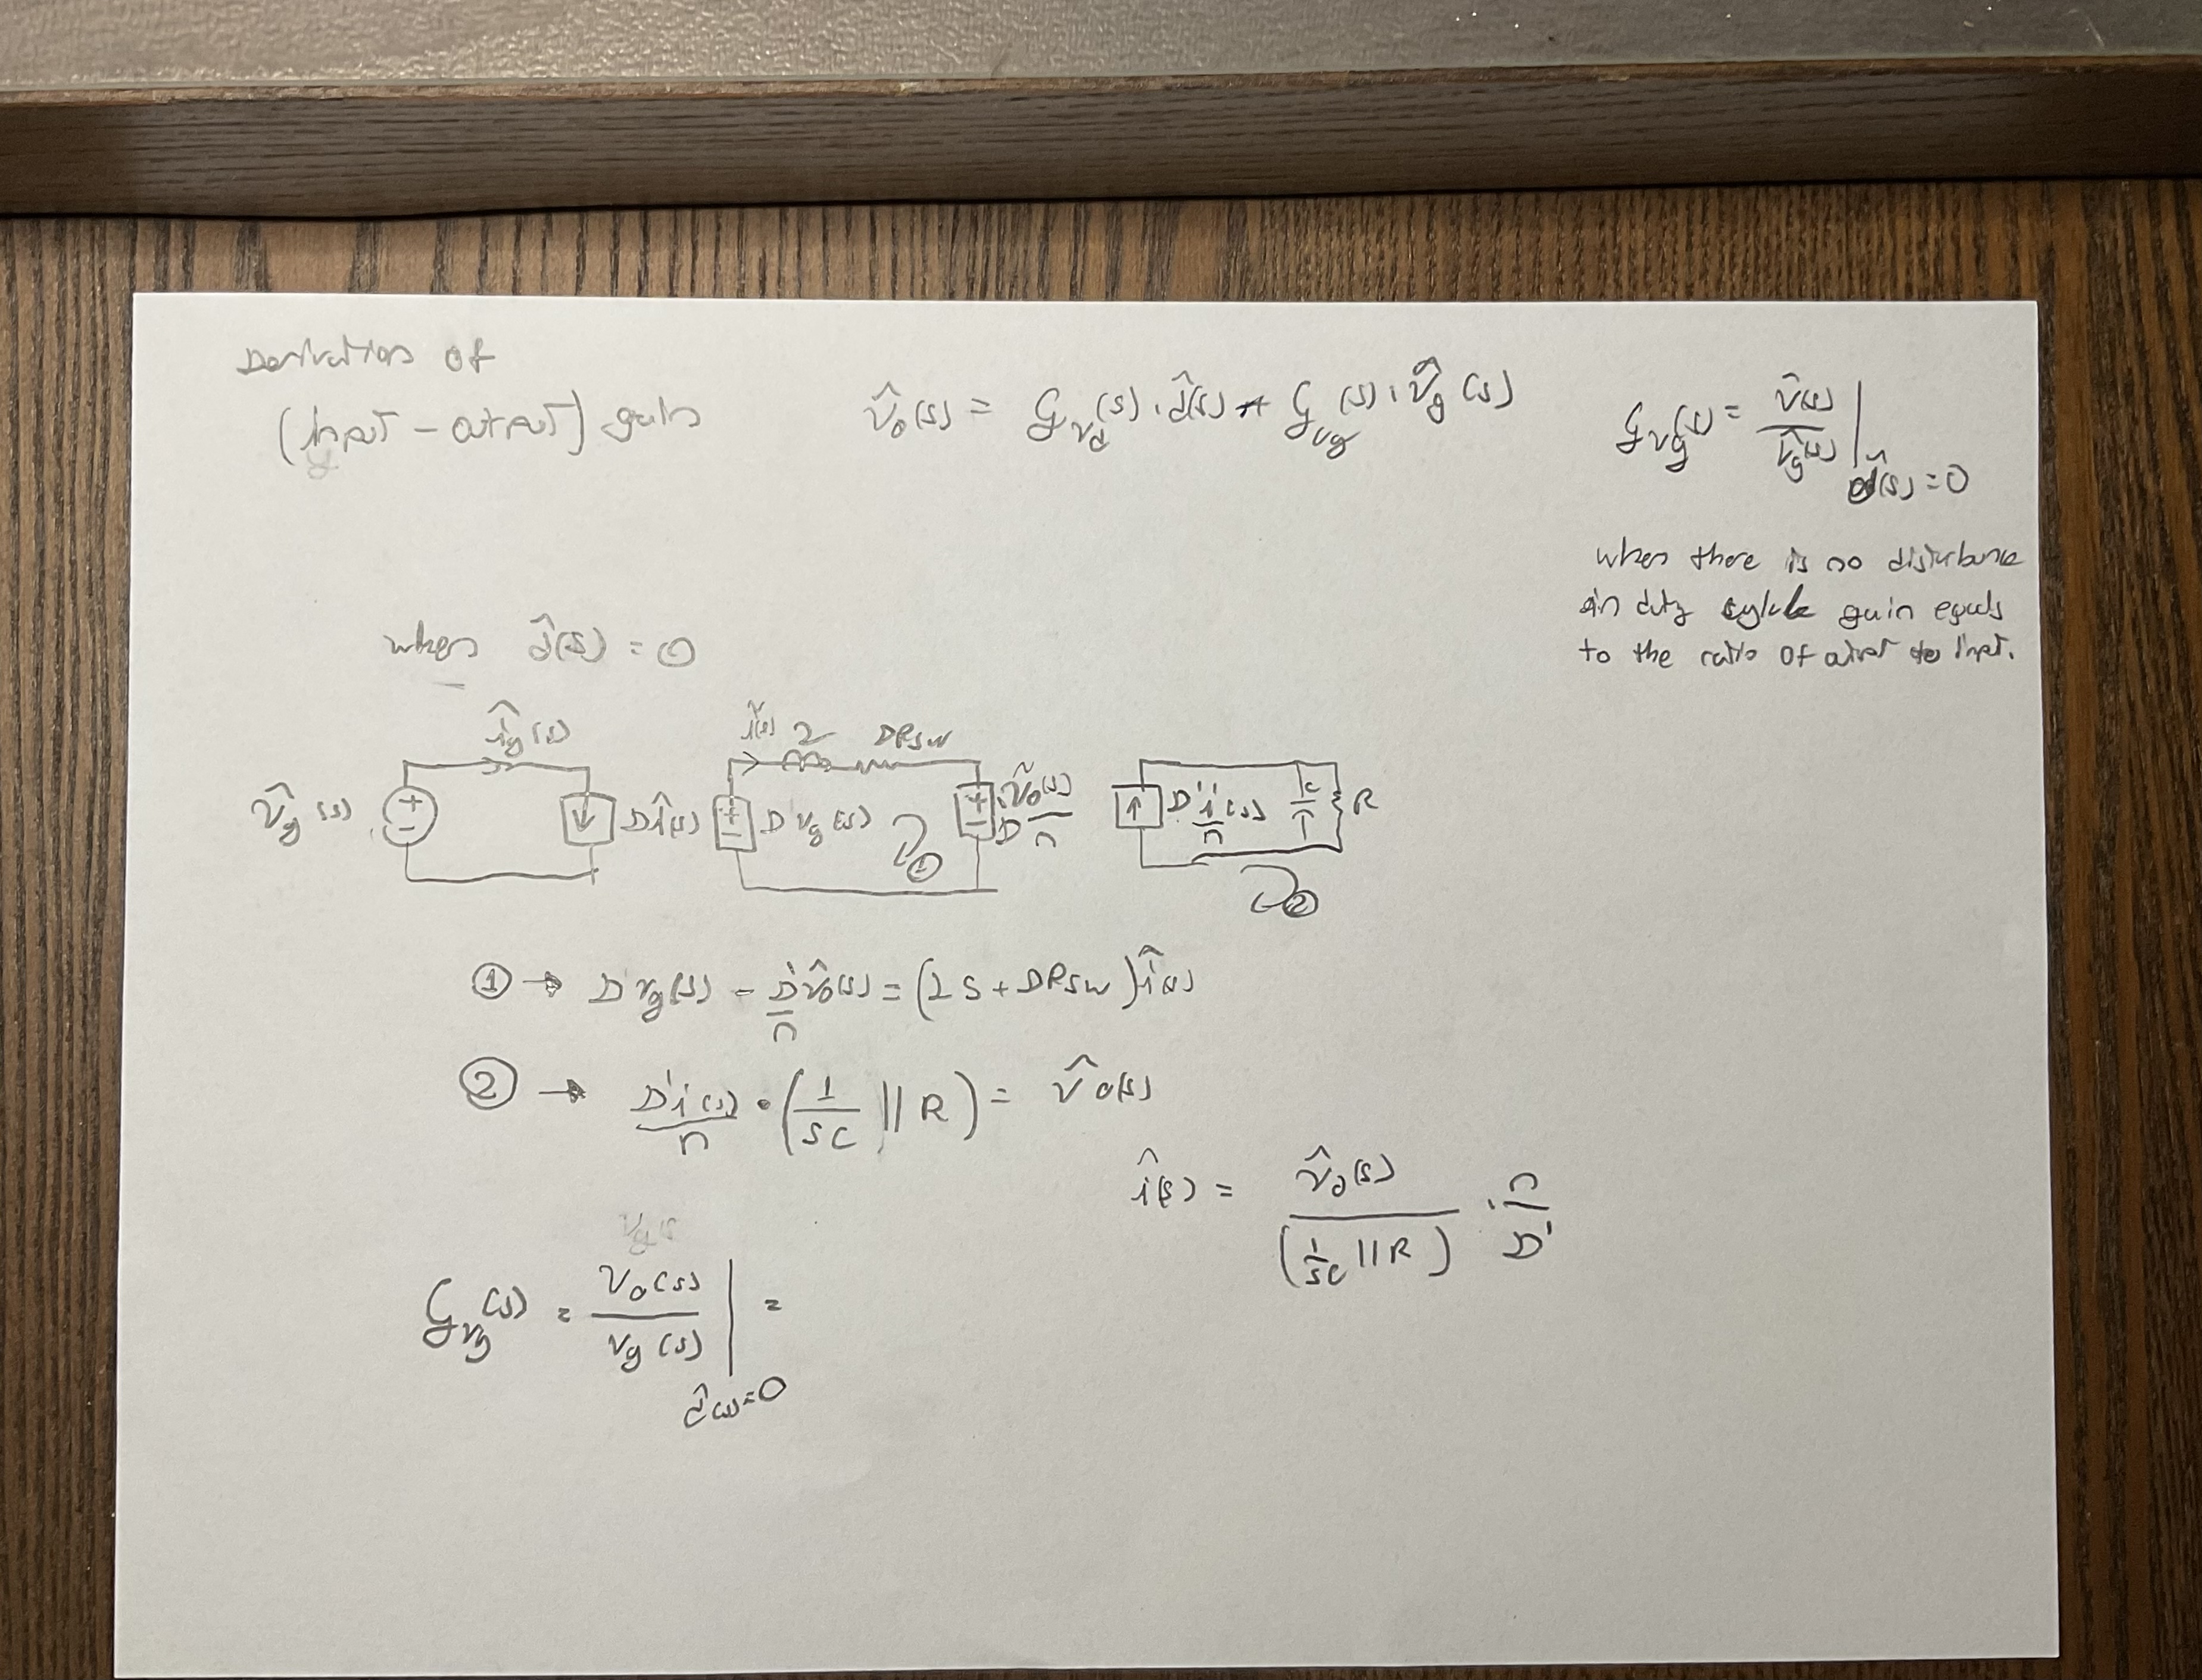 Derivation of
(input - output) gain
v̂o(s) = Gvd(s) . d̂(s) + Gvg(s) . v̂g(s)
Gvg(s) = v̂(s) / v̂g(s) | d̂(s) = 0
when there is no disturbance
in duty cykle gain equals
to the ratio of to
when d̂(s) = 0
îg(s)
î(s) L DRsw
v̂g(s) + - Dî(s) + - Dvg(s) 1 + - D' v̂o(s)/n D'i(s)/n C R
2
1 → Dvg(s) - D'v̂o(s)/n = (LS + DRsw) î(s)
2 → D'i(s)/n . (1/sC || R) = v̂o(s)
î(s) = v̂o(s) / (1/sC || R) . n/D'
vg(s
Gvg(s) = vo(s) / vg(s) | d̂(s)=0 =